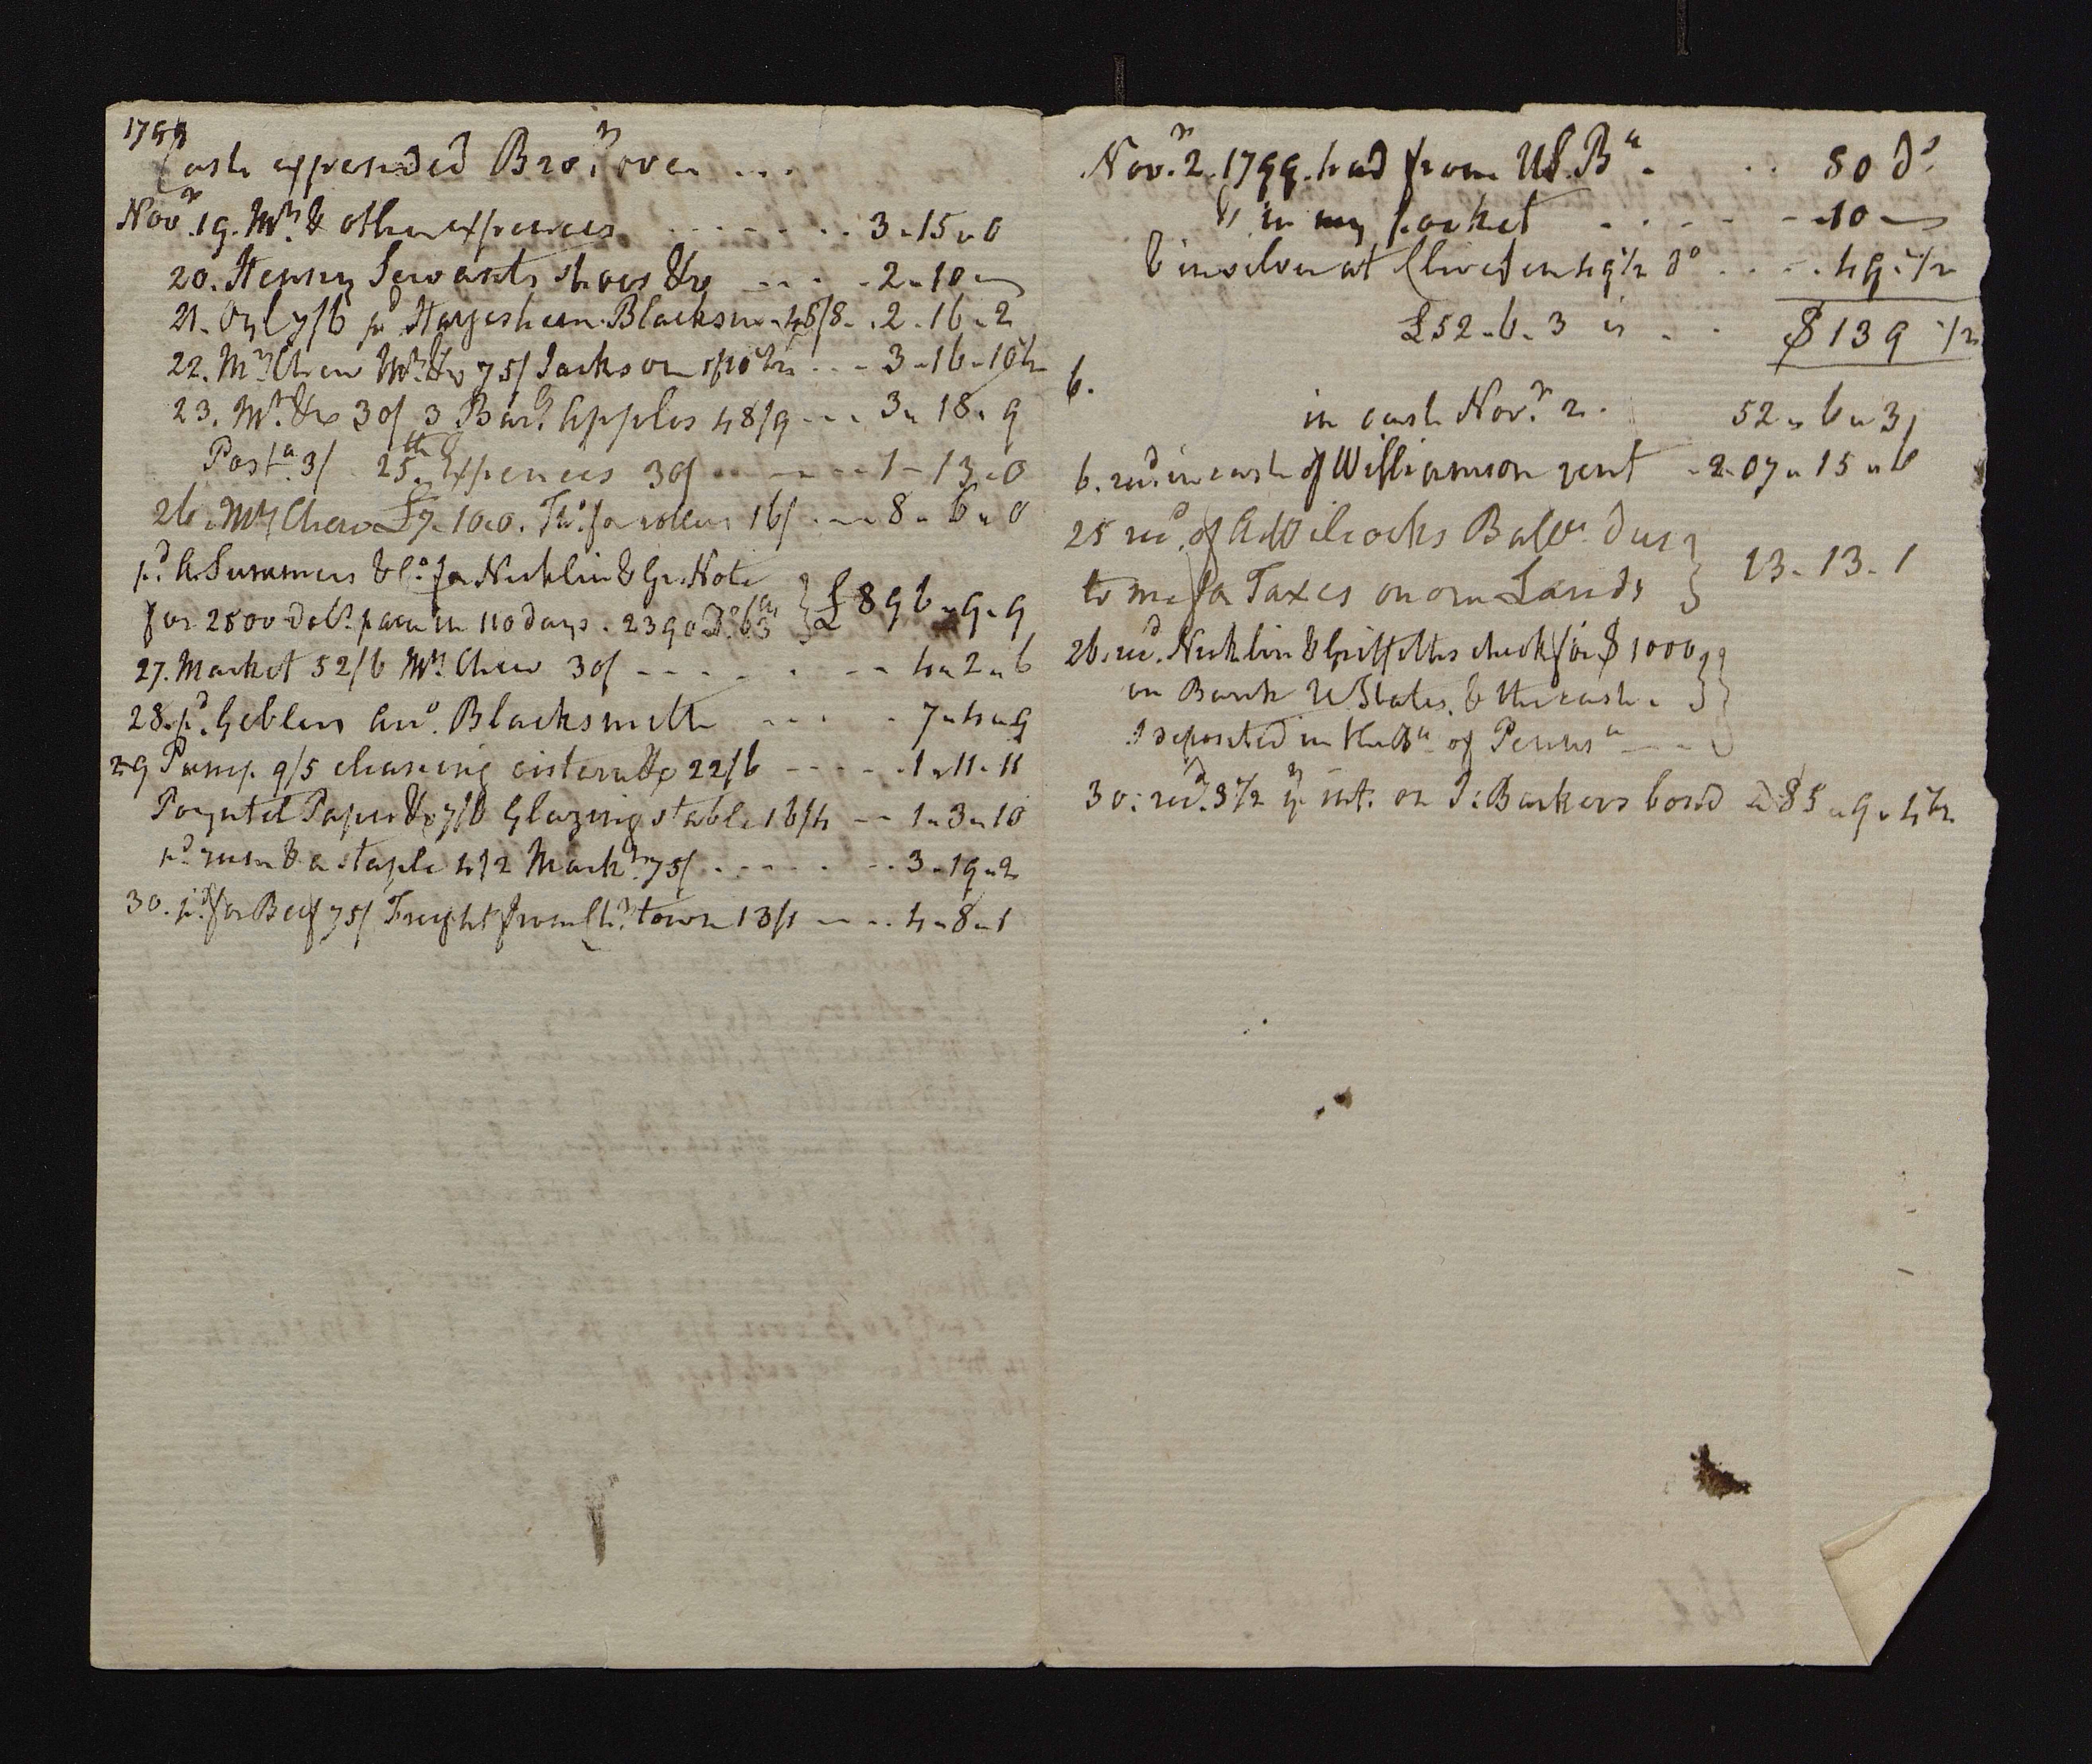 1799
Cash expended Bro.t over ...
Nov.r 19. Mk.t & other expences ....... 3 - 15 - 0
20. Henny Servants shoes &c ... - 2 - 10 -
21. Oyl 7/6 p.d Hayesham Blacksm. 48/8 .. 2 . 16 - 2
22. M.rs Chew Mk.t &c 75/ Jackson 1/10 1/2 ... 3 - 16 - 10 1/2
23. Mk.t &c 30/ 3 Bar.ls Apples 48/9 ... 3 - 18 - 9
Post.a 3/ 25.th Expences 30/ ... 1 - 13 - 0
26. M.rs Chew £7-10-0. Th.o for rollers 16/ ... 8 - 6 - 0
p.d A. Summers & C.o for Nicklin & Gr. Note
for 2500 Doll.s paya in 110 days . 2390 D.s 63 } £896 - 9 - 9
27. Market 52/6 M.rs Chew 30/ ------ 4 - 2 - 6
28. p.d Geblers Acc.o Blacksmith ---- 7 - 4 - 9
29 Pump 9/5 cleaning cistern &c 22/6 ----- 1 - 11 - 11
Poyntel Paper &c 7/6 Glazing stable 16/4 -- 1 - 3 - 10
p.d rum & a staple 4/2 Mark.t 75/ ....... 3 - 19 - 2
30. p.d for Beef 75/ Freight from Ch.r town 13/1 --- 4 - 8 - 1
Nov.r 2. 1799. had from US. B.a . .. 80 d.s
D.o in my pocket ..... - 10 -
& in silver at Cliveden 49 1/2 d.o .... 49 . 1/2
£52 - 6 - 3 is . . $139 1/2
6.
in cash Nov.r 2 . 52 - 6 - 3
6. rec.d in cash of Williamson rent - 207 - 15 - 6
25 rec.d of A. Wilcocks Bal.ce due }
to me for Taxes on our Lands } 13 - 13 - 1
26. rec.d Nicklin & Griffiths check for $1000 }
on Bank U States, & the cash }
I deposited in the B.a of Penns.a --- }
30: rec.d 3 1/2 y.r int. on J: Barkers bond 85 - 9 - 4 1/2